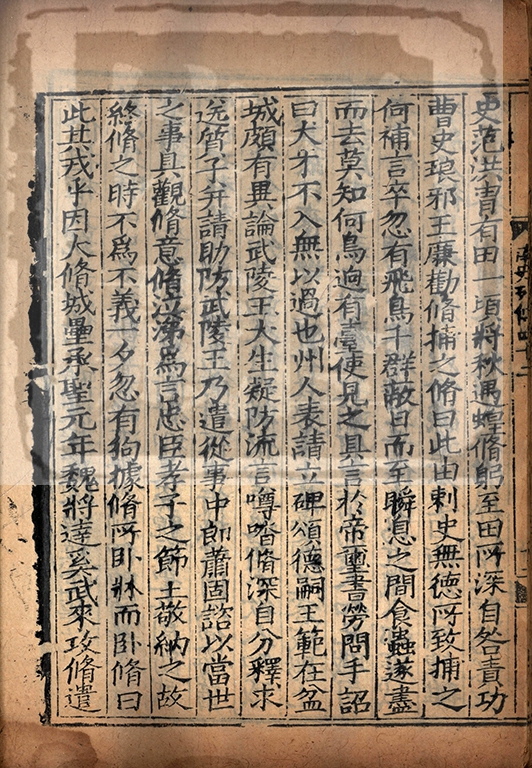 史范洪胄有田一頃將秋遇蝗脩躬至田所深自咎責功
曹史琅邪王廉勸脩捕之脩曰此由刺史無德所致捕之
何補言卒忽有飛鳥千群蔽日而至瞬息之間食蟲遂盡
而去莫知何鳥適有臺使見之具言於帝璽書勞問手詔
曰犬牙不入無以過也州人表請立碑頌德嗣王範在盆
城頗有異論武陵王大生疑防流言噂脩深自分釋求
送質子并請助防武陵王乃遣從事中郎蕭固諮以當世
之事具觀脩意脩泣涕為言忠臣孝子之節王敬納之故
終脩之時不為不義一夕忽有狗據脩所臥牀而臥脩曰
此其戎乎因大脩城壘承聖元年魏將達奚武來攻脩遣